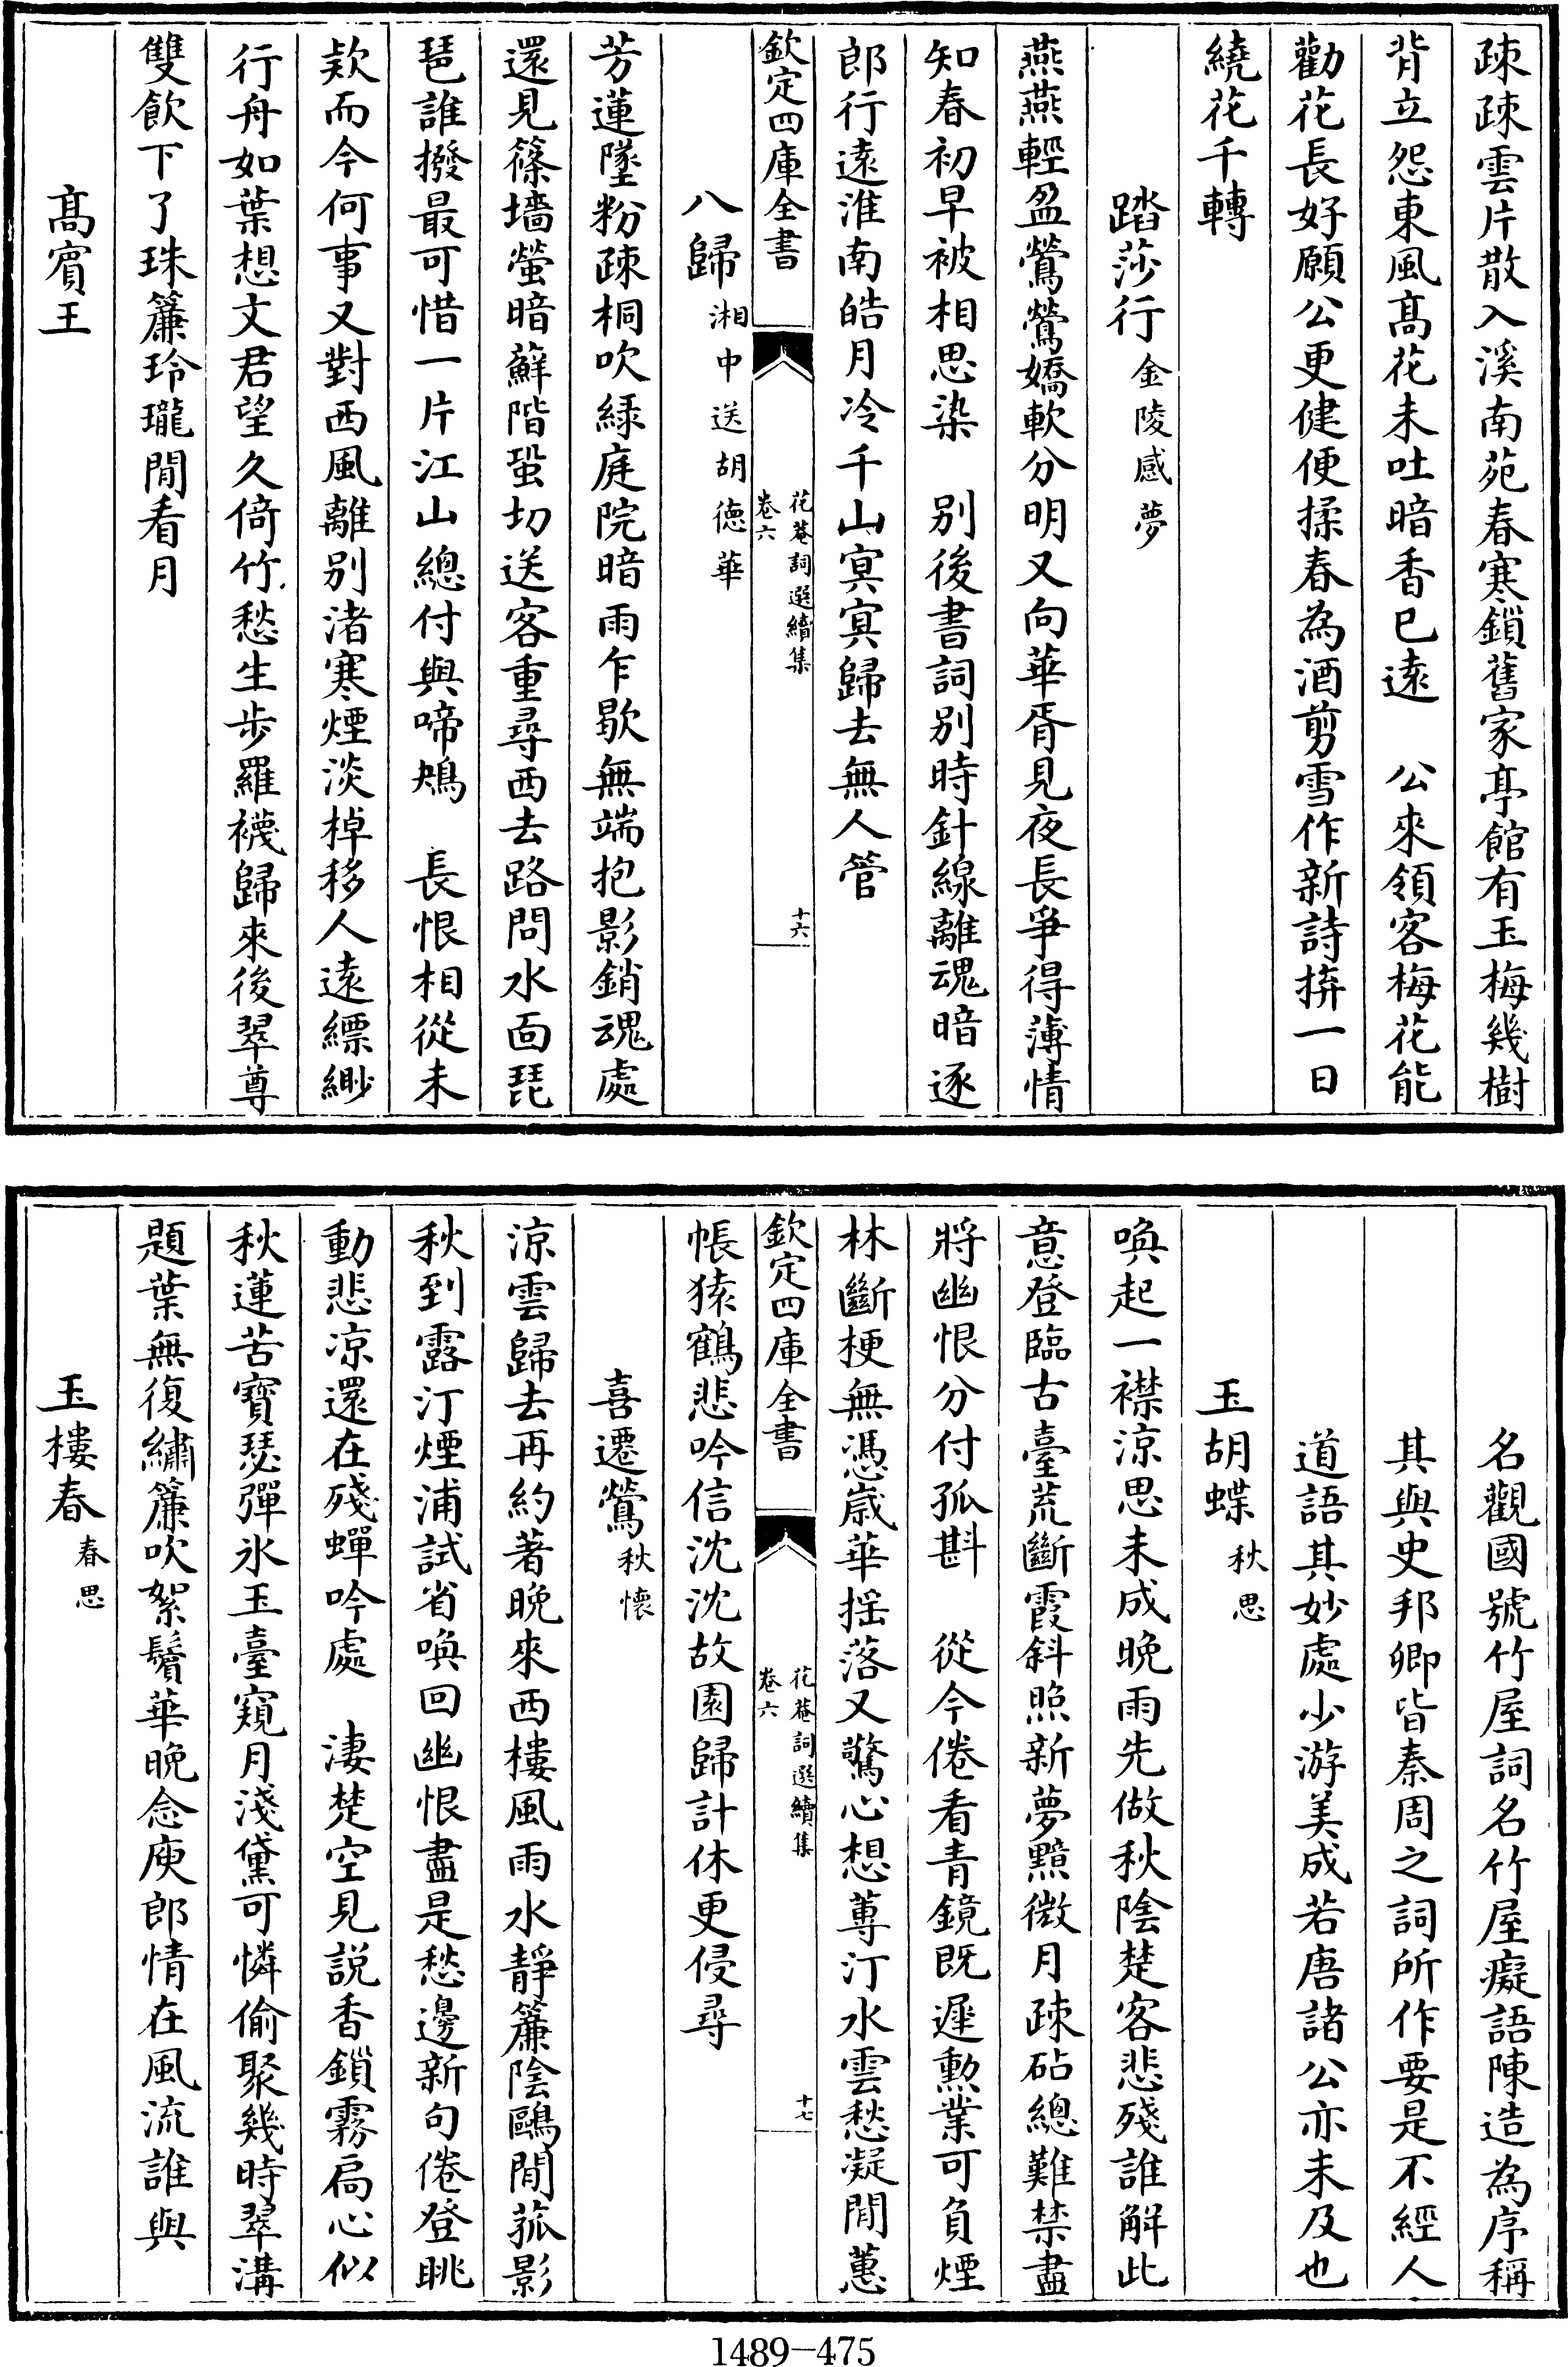 疎疎雲片散入溪南苑春寒鎖舊家亭館有玉梅幾樹
背立怨東風髙花未吐暗香已遠　公來領客梅花能
勸花長好願公更健便揉春為酒剪雪作新詩拚一日
繞花千轉
踏莎行金陵感夢
燕燕輕盈鶯鶯嬌軟分明又向華胥見夜長爭得薄情
知春初早被相思染　別後書詞別時針線離魂暗逐
郎行遠淮南皓月冷千山冥冥歸去無人管
欽定四庫全書
花菴詞選續集
卷六
十六
八歸湘中送胡徳華
芳蓮墜粉疎桐吹綠庭院暗雨乍歇無端抱影銷魂處
還見篠墻螢暗蘚階蛩切送客重尋西去路問水面琵
琶誰撥最可惜一片江山總付與啼鴂　長恨相從未
欵而今何事又對西風離別渚寒煙淡棹移人遠縹緲
行舟如葉想文君望久倚竹愁生步羅襪歸來後翠尊
雙飲下了珠簾玲瓏閒看月
髙賓王
名觀國號竹屋詞名竹屋癡語陳造為序稱
其與史邦卿皆秦周之詞所作要是不經人
道語其妙處少游美成若唐諸公亦未及也
玉胡蝶秋思
喚起一襟涼思未成晚雨先做秋陰楚客悲殘誰解此
意登臨古臺荒斷霞斜照新夢黯微月疎砧總難禁盡
將幽恨分付孤斟　從今倦看青鏡既遲勲業可負煙
林斷梗無憑嵗華揺落又驚心想蓴汀水雲愁凝閒蕙
帳猿鶴悲吟信沈沈故園歸計休更侵尋
欽定四庫全書
花菴詞選續集
卷六
十七
喜遷鶯秋懷
涼雲歸去再約著晚來西樓風雨水靜簾陰鷗閒菰影
秋到露汀煙浦試省喚回幽恨盡是愁邊新句倦登眺
動悲涼還在殘蟬吟處　淒楚空見説香鎖霧扃心似
秋蓮苦寶瑟彈氷玉臺窺月淺黛可憐偷聚幾時翠溝
題葉無復繡簾吹絮鬢華晚念庾郎情在風流誰與
玉樓春春思
1489-475